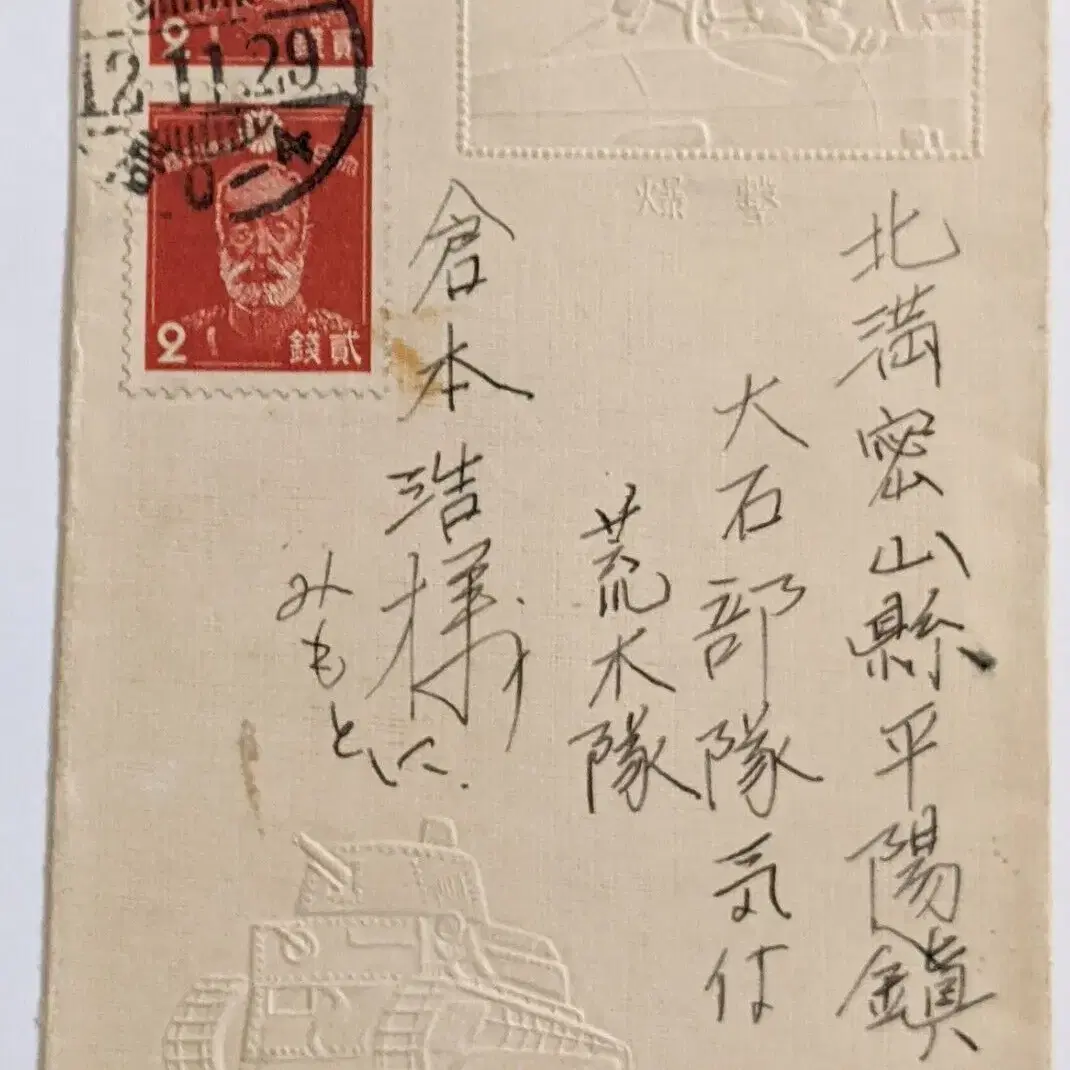 北満密山縣平陽鎮
大石部隊気付
荒木隊
倉本浩様
みもとに
爆撃
12.11.29
2 貳錢
2 貳錢